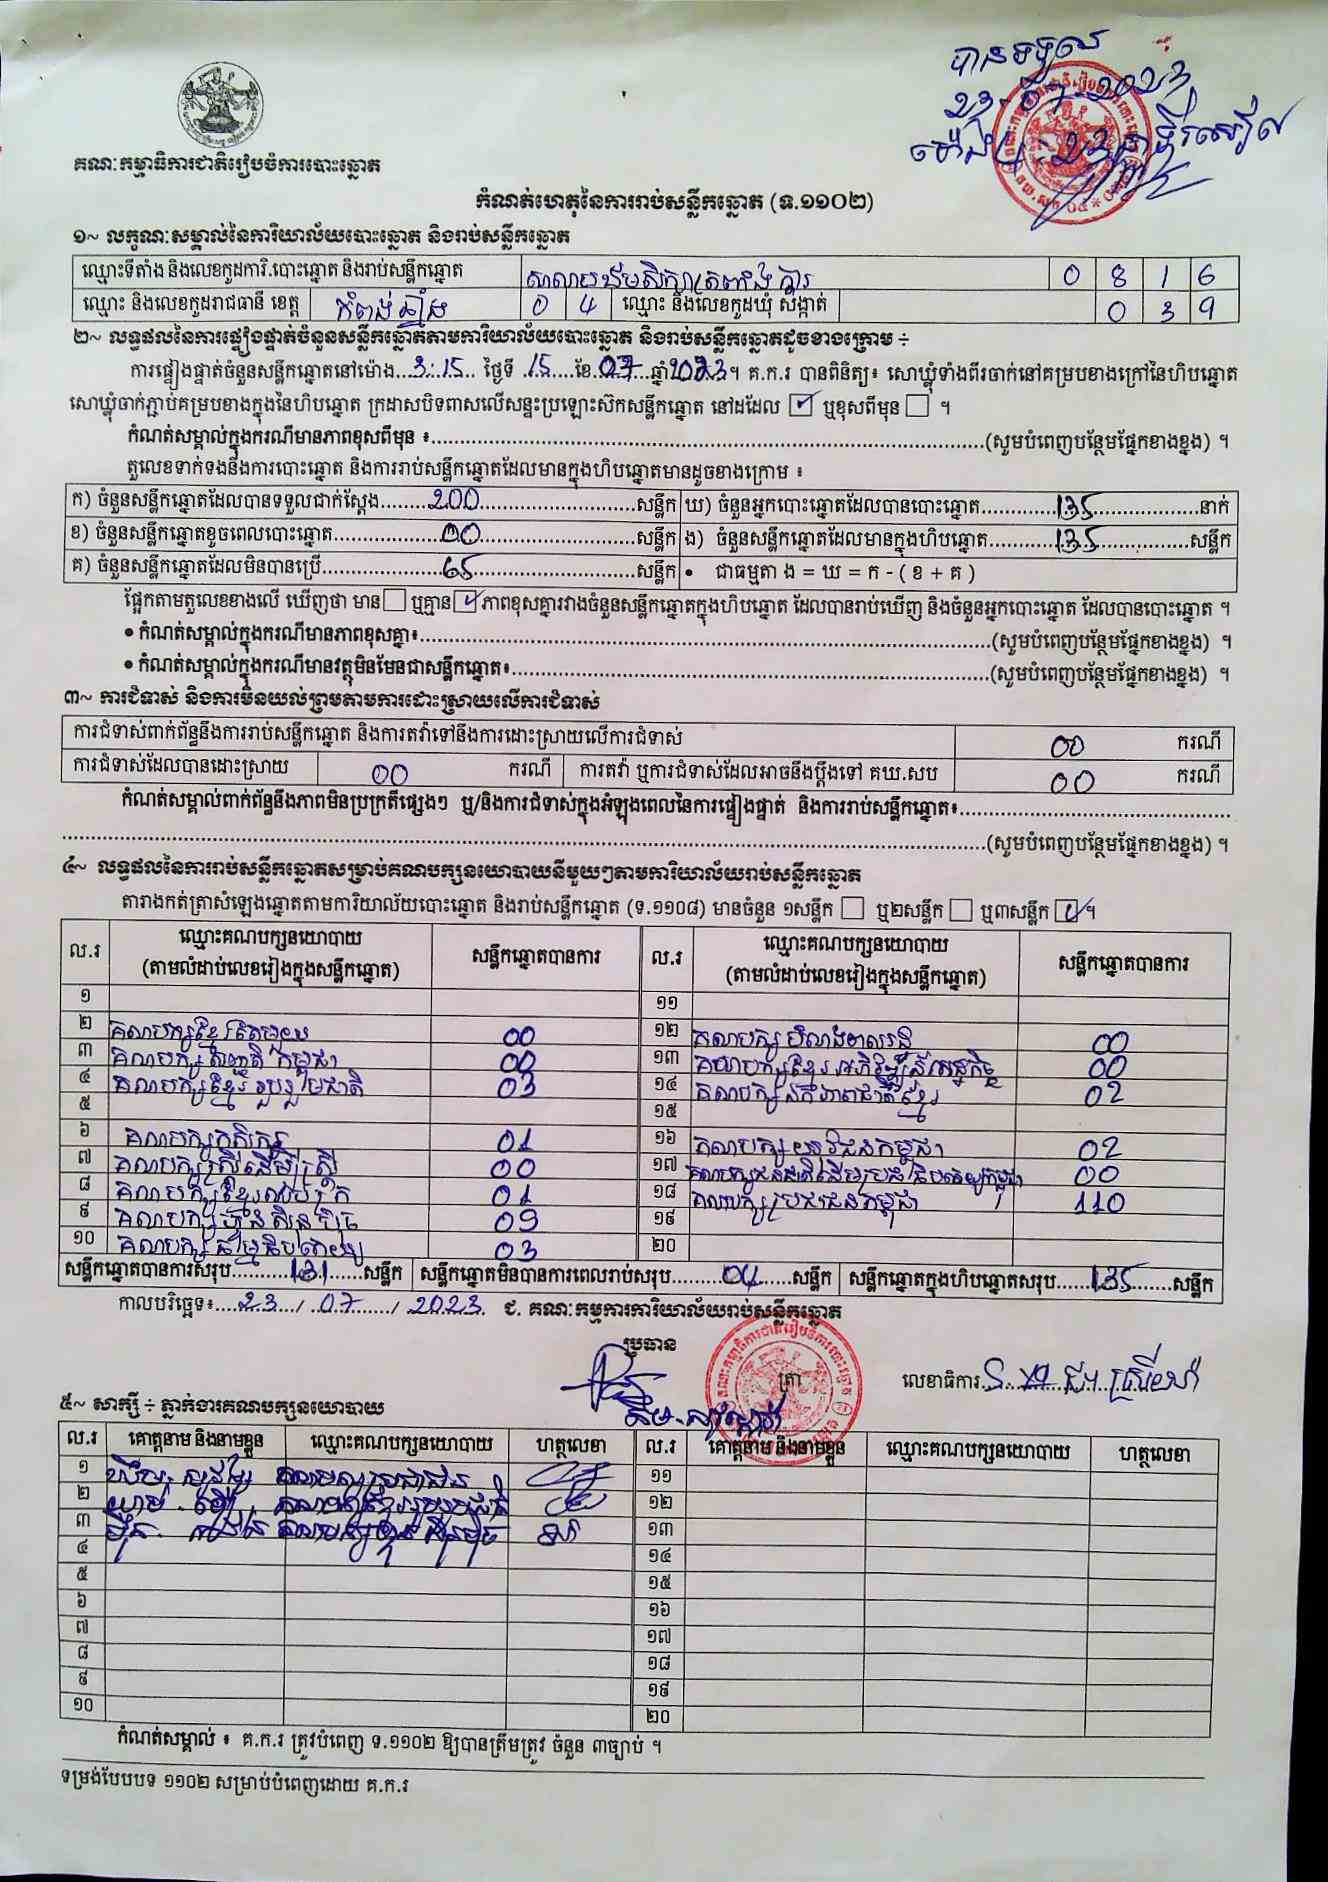 បានទទួល
23-07-2023
គណៈកម្មាធិការជាតិរៀបចំការបោះឆ្នោត
កំណត់ហេតុនៃការរាប់សន្លឹកឆ្នោត (ទ.១១០២)
១~ លក្ខណៈសម្គាល់នៃការិយាល័យបោះឆ្នោត និងរាប់សន្លឹកឆ្នោត
ឈ្មោះទីតាំង និងលេខកូដការិ.បោះឆ្នោត និងរាប់សន្លឹកឆ្នោត 0 8 1 6
ឈ្មោះ និងលេខកូដរាជធានី ខេត្ត កំពង់ឆ្នាំង 0 4 ឈ្មោះ និងលេខកូដឃុំ សង្កាត់ 0 3 9
២~ លទ្ធផលនៃការផ្ទៀងផ្ទាត់ចំនួនសន្លឹកឆ្នោតតាមការិយាល័យបោះឆ្នោត និងរាប់សន្លឹកឆ្នោតដូចខាងក្រោម ÷
ការផ្ទៀងផ្ទាត់ចំនួនសន្លឹកឆ្នោតនៅម៉ោង...3:15... ថ្ងៃទី .15....ខែ...07...ឆ្នាំ2023។ គ.ក.រ បានពិនិត្យ៖ សោឃ្លុំទាំងពីរចាក់នៅគម្របខាងក្រៅនៃហិបឆ្នោត
សោឃ្លុំចាក់ភ្ជាប់គម្របខាងក្នុងនៃហិបឆ្នោត ក្រដាសបិទពាសលើសន្ទះប្រឡោះស៊កសន្លឹកឆ្នោត នៅដដែល ☑ ឬខុសពីមុន ☐ ។
កំណត់សម្គាល់ក្នុងករណីមានភាពខុសពីមុន ៖..........(សូមបំពេញបន្ថែមផ្នែកខាងខ្នង) ។
តួលេខទាក់ទងនឹងការបោះឆ្នោត និងការរាប់សន្លឹកឆ្នោតដែលមានក្នុងហិបឆ្នោតមានដូចខាងក្រោម ៖
ក) ចំនួនសន្លឹកឆ្នោតដែលបានទទួលជាក់ស្តែង........200..........សន្លឹក ឃ) ចំនួនអ្នកបោះឆ្នោតដែលបានបោះឆ្នោត..........135..........នាក់
ខ) ចំនួនសន្លឹកឆ្នោតខូចពេលបោះឆ្នោត..........00..........សន្លឹក ង) ចំនួនសន្លឹកឆ្នោតដែលមានក្នុងហិបឆ្នោត..........135..........សន្លឹក
គ) ចំនួនសន្លឹកឆ្នោតដែលមិនបានប្រើ..........65..........សន្លឹក • ជាធម្មតា ង = ឃ = ក - ( ខ + គ )
ផ្អែកតាមតួលេខខាងលើ ឃើញថា មាន ☐ ឬគ្មាន ☑ ភាពខុសគ្នារវាងចំនួនសន្លឹកឆ្នោតក្នុងហិបឆ្នោត ដែលបានរាប់ឃើញ និងចំនួនអ្នកបោះឆ្នោត ដែលបានបោះឆ្នោត ។
• កំណត់សម្គាល់ក្នុងករណីមានភាពខុសគ្នា៖..........(សូមបំពេញបន្ថែមផ្នែកខាងខ្នង) ។
• កំណត់សម្គាល់ក្នុងករណីមានវត្ថុមិនមែនជាសន្លឹកឆ្នោត៖..........(សូមបំពេញបន្ថែមផ្នែកខាងខ្នង) ។
៣~ ការជំទាស់ និងការមិនយល់ព្រមតាមការដោះស្រាយលើការជំទាស់
ការជំទាស់ពាក់ព័ន្ធនឹងការរាប់សន្លឹកឆ្នោត និងការតវ៉ាទៅនឹងការដោះស្រាយលើការជំទាស់ 00 ករណី
ការជំទាស់ដែលបានដោះស្រាយ 00 ករណី ការតវ៉ា ឬការជំទាស់ដែលអាចនឹងប្តឹងទៅ គឃ.សប 00 ករណី
កំណត់សម្គាល់ពាក់ព័ន្ធនឹងភាពមិនប្រក្រតីផ្សេងៗ ឬ/និងការជំទាស់ក្នុងអំឡុងពេលនៃការផ្ទៀងផ្ទាត់ និងការរាប់សន្លឹកឆ្នោត៖..........
..........(សូមបំពេញបន្ថែមផ្នែកខាងខ្នង) ។
៤~ លទ្ធផលនៃការរាប់សន្លឹកឆ្នោតសម្រាប់គណបក្សនយោបាយនីមួយៗតាមការិយាល័យរាប់សន្លឹកឆ្នោត
តារាងកត់ត្រាសំឡេងឆ្នោតតាមការិយាល័យបោះឆ្នោត និងរាប់សន្លឹកឆ្នោត (ទ.១១០៨) មានចំនួន ១សន្លឹក ☐ ឬ២សន្លឹក ☐ ឬ៣សន្លឹក ☑។
ល.រ ឈ្មោះគណបក្សនយោបាយ (តាមលំដាប់លេខរៀងក្នុងសន្លឹកឆ្នោត) សន្លឹកឆ្នោតបានការ ល.រ ឈ្មោះគណបក្សនយោបាយ (តាមលំដាប់លេខរៀងក្នុងសន្លឹកឆ្នោត) សន្លឹកឆ្នោតបានការ
១ ១១
២ គណបក្សខ្មែរតែមួយ 00 ១២ គណបក្ស 00
៣ គណបក្សសញ្ជាតិកម្ពុជា 00 ១៣ គណបក្សខ្មែរអភិវឌ្ឍន៍សេដ្ឋកិច្ច 00
៤ គណបក្សខ្មែររួបរួមជាតិ 03 ១៤ គណបក្សឯកភាពជាតិខ្មែរ 02
៥ ១៥
៦ គណបក្សកសិករ 01 ១៦ គណបក្សយុវជនកម្ពុជា 02
៧ គណបក្សស្ត្រីដើម្បីស្ត្រី 00 ១៧ គណបក្សជនជាតិដើមប្រជាធិបតេយ្យកម្ពុជា 00
៨ គណបក្សខ្មែរឈប់ក្រ 01 ១៨ គណបក្សប្រជាជនកម្ពុជា 110
៩ គណបក្សហ្វ៊ុនស៊ិនប៉ិច 09 ១៩
១០ គណបក្សធម្មាធិបតេយ្យ 03 ២០
សន្លឹកឆ្នោតបានការសរុប..........131......សន្លឹក សន្លឹកឆ្នោតមិនបានការពេលរាប់សរុប........04......សន្លឹក សន្លឹកឆ្នោតក្នុងហិបឆ្នោតសរុប......135......សន្លឹក
កាលបរិច្ឆេទ៖....23.../..07..../..2023. ជ. គណៈកម្មការការិយាល័យរាប់សន្លឹកឆ្នោត
ប្រធាន ត្រា លេខាធិការ
៥~ សាក្សី ÷ ភ្នាក់ងារគណបក្សនយោបាយ
ល.រ គោត្តនាម និងនាមខ្លួន ឈ្មោះគណបក្សនយោបាយ ហត្ថលេខា ល.រ គោត្តនាម និងនាមខ្លួន ឈ្មោះគណបក្សនយោបាយ ហត្ថលេខា
១ គណបក្សប្រជាជន ១១
២ គណបក្សខ្មែររួបរួមជាតិ ១២
៣ គណបក្សហ្វ៊ុនស៊ិនប៉ិច ១៣
៤ ១៤
៥ ១៥
៦ ១៦
៧ ១៧
៨ ១៨
៩ ១៩
១០ ២០
កំណត់សម្គាល់ ៖ គ.ក.រ ត្រូវបំពេញ ទ.១១០២ ឱ្យបានត្រឹមត្រូវ ចំនួន ៣ច្បាប់ ។
ទម្រង់បែបបទ ១១០២ សម្រាប់បំពេញដោយ គ.ក.រ